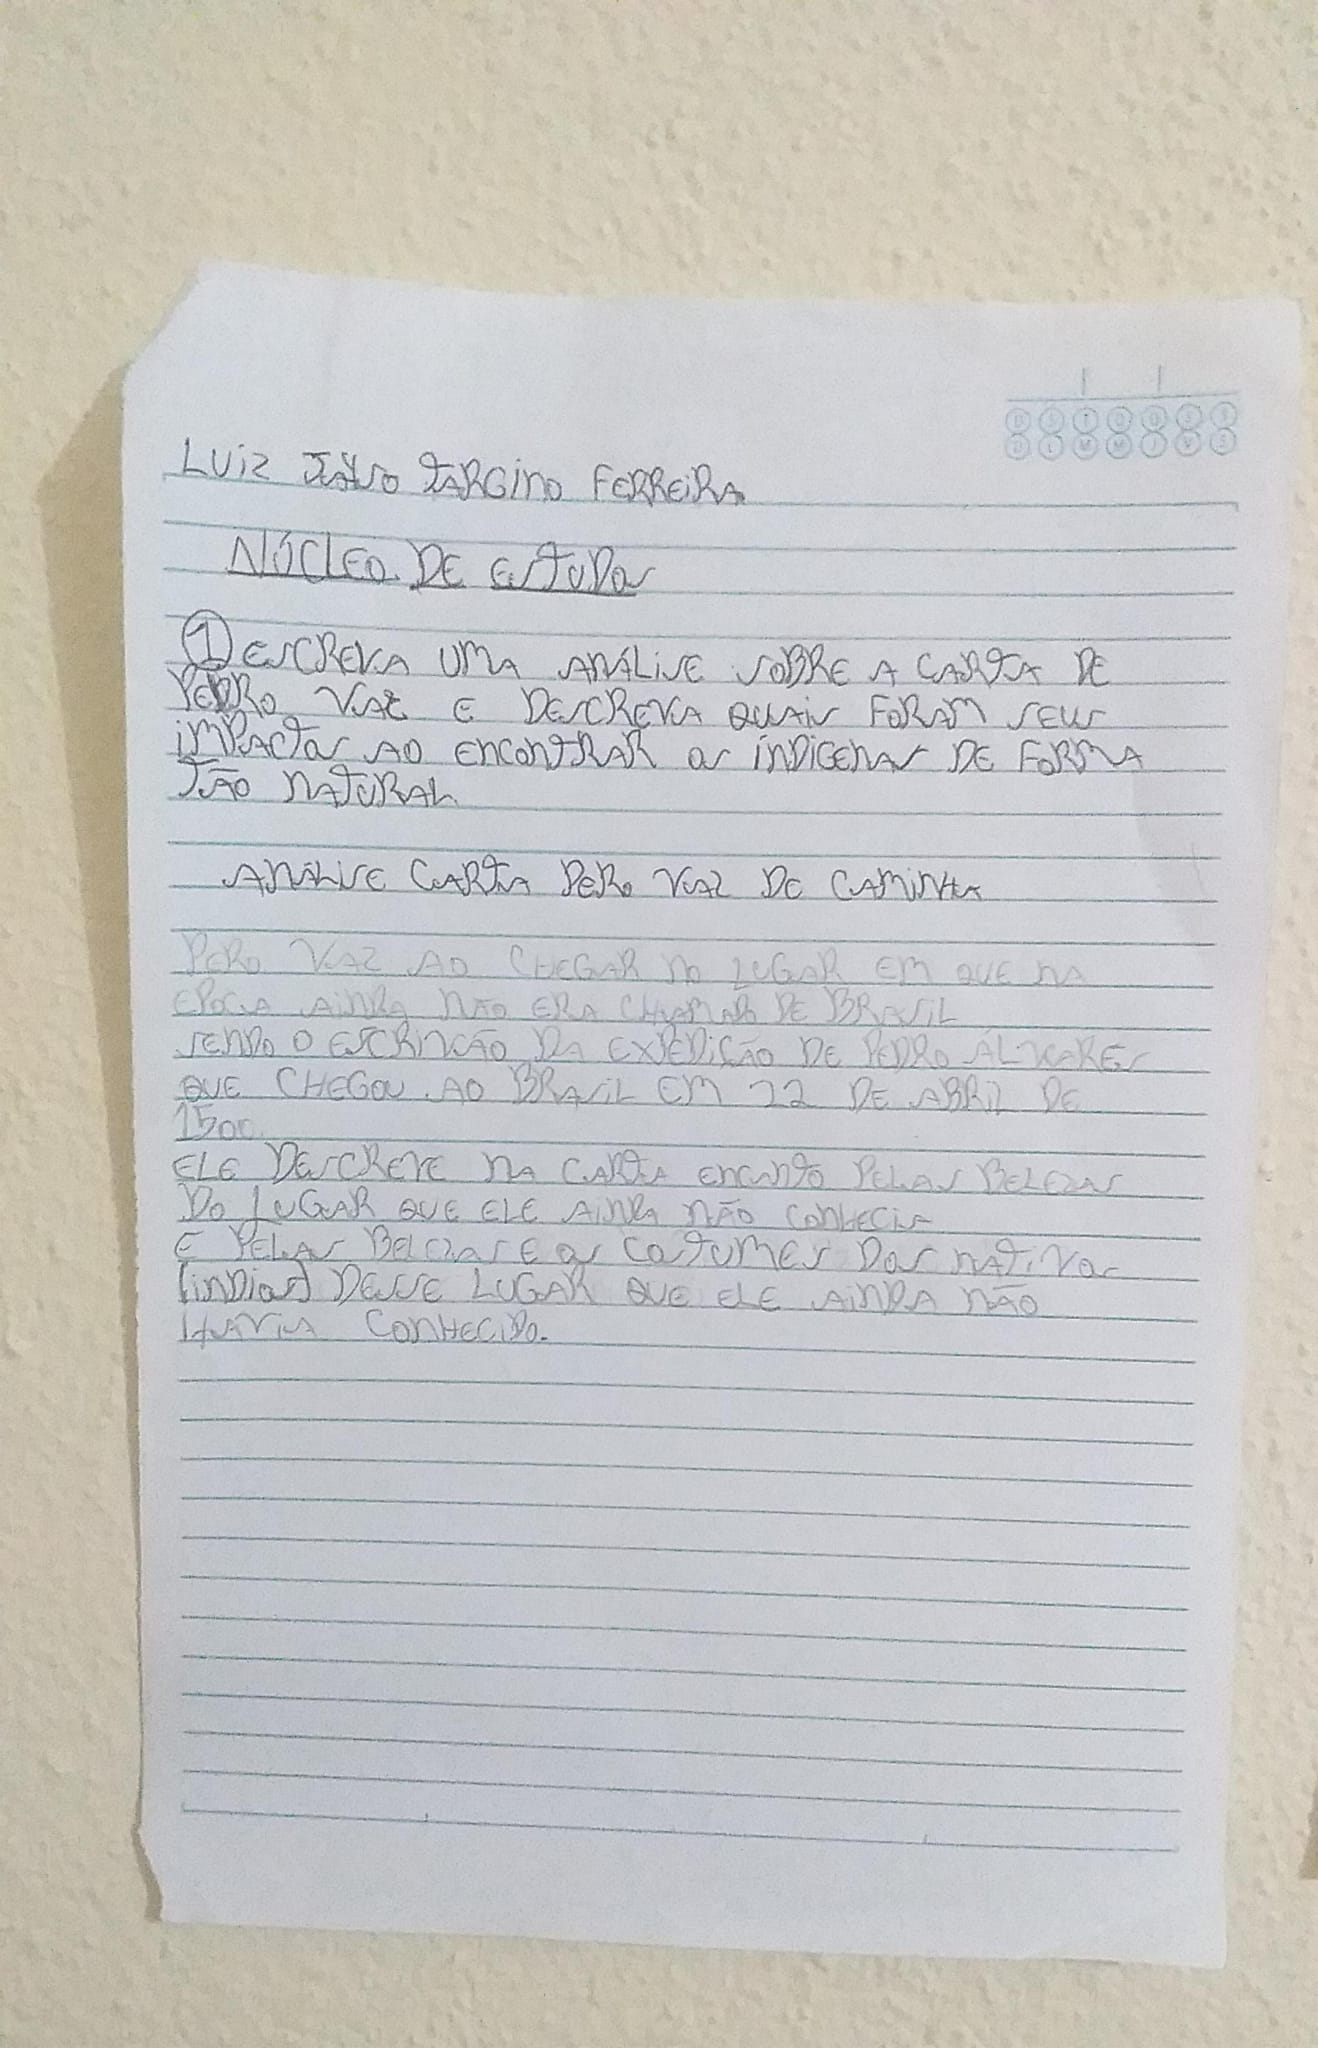 LUIZ TARGINO FERREIRA
NÚCLEO DE ESTUDOS
1 ESCREVA UMA ANÁLISE SOBRE A CARTA DE
PEDRO VAZ E DESCREVA QUAIS FORAM SEUS
IMPACTOS AO ENCONTRAR OS ÍNDIGENAS DE FORMA
TÃO NATURAL
ANÁLISE CARTA PERO VAZ DE CAMINHA
PERO VAZ AO CHEGAR NO LUGAR EM QUE NA
EPOCA AINDA NÃO ERA CHAMADO DE BRASIL
SENDO O ESCRIVÃO DA EXPEDIÇÃO DE PEDRO ÁLVARES
QUE CHEGOU AO BRASIL EM 22 DE ABRIL DE
1500.
ELE DESCREVE NA CARTA ENCANTO PELAS BELEZAS
DO LUGAR QUE ELE AINDA NÃO CONHECIA
E PELAS BELEZAS E OS COSTUMES DOS NATIVOS
(INDIOS) DESSE LUGAR QUE ELE AINDA NÃO
HAVIA CONHECIDO.